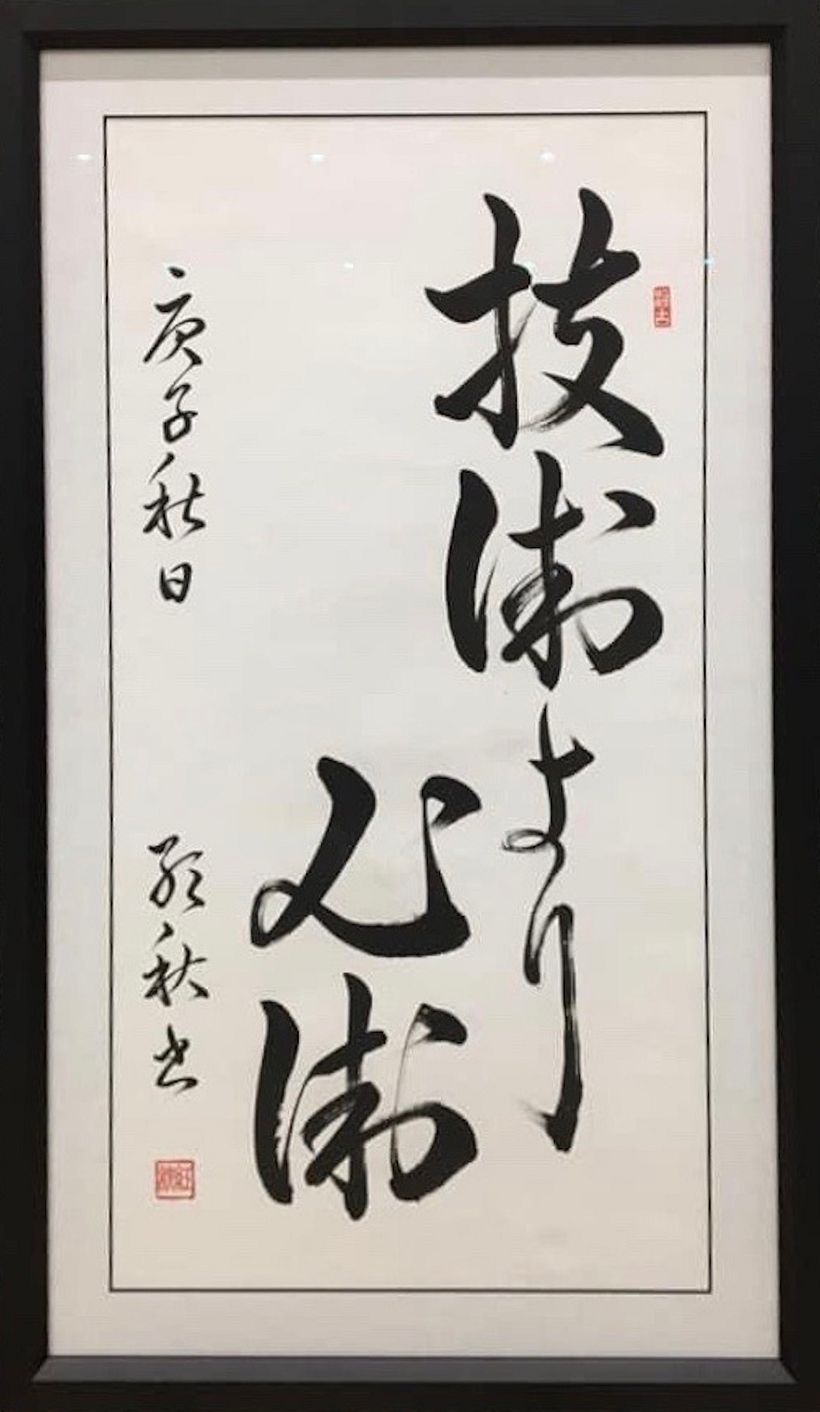 技術より
心術
庚子秋日
秋書